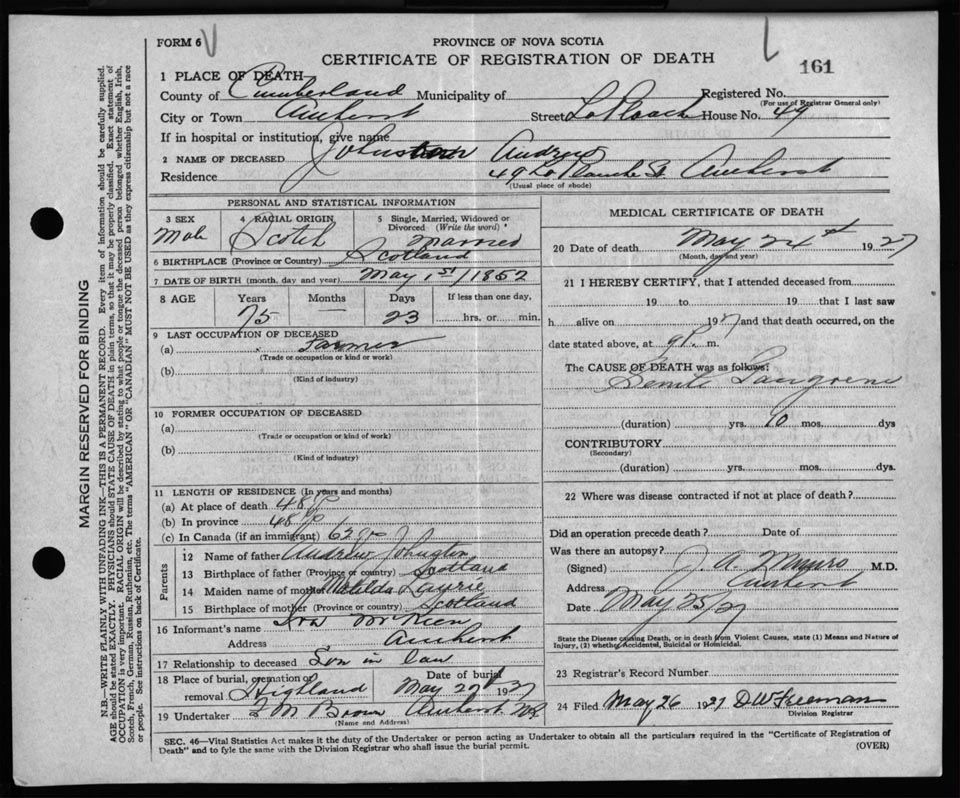 FORM 6
PROVINCE OF NOVA SCOTIA
CERTIFICATE OF REGISTRATION OF DEATH
161
1 PLACE OF DEATH
County of Cumberland Municipality of Registered No.
(For use of Registrar General only)
City or Town Amherst Street House No. 49
If in hospital or institution, give name
2 NAME OF DECEASED Johnston Andrew
Residence 49 La Planche St Amherst
(Usual place of abode)
PERSONAL AND STATISTICAL INFORMATION
3 SEX Male
4 RACIAL ORIGIN Scotch
5 Single, Married, Widowed or Divorced (Write the word) Married
6 BIRTHPLACE (Province or Country) Scotland
7 DATE OF BIRTH (month, day and year) May 1st/1852
8 AGE Years Months Days If less than one day,
75 — 23 hrs. or min.
9 LAST OCCUPATION OF DECEASED
(a) Farmer
(Trade or occupation or kind of work)
(b)
(Kind of industry)
10 FORMER OCCUPATION OF DECEASED
(a)
(Trade or occupation or kind of work)
(b)
(Kind of industry)
11 LENGTH OF RESIDENCE (In years and months)
(a) At place of death 48
(b) In province 48
(c) In Canada (if an immigrant)
Parents
12 Name of father Andrew Johnston
13 Birthplace of father (Province or country) Scotland
14 Maiden name of mother Matilda Lawrie
15 Birthplace of mother (Province or country) Scotland
16 Informant's name
Address Amherst
17 Relationship to deceased Son in law
18 Place of burial, cremation or removal Highland Date of burial May 27 1927
19 Undertaker Brown Amherst NS
(Name and Address)
MEDICAL CERTIFICATE OF DEATH
20 Date of death May 24th 1927
(Month, day and year)
21 I HEREBY CERTIFY, that I attended deceased from
19 to 19 that I last saw
h alive on 1927 and that death occurred, on the
date stated above, at 9 P. m.
The CAUSE OF DEATH was as follows:
Senile Gangrene
(duration) yrs. 10 mos. dys
CONTRIBUTORY
(Secondary)
(duration) yrs. mos. dys.
22 Where was disease contracted if not at place of death?
Did an operation precede death? Date of
Was there an autopsy?
(Signed) J. A. Munro M.D.
Address Amherst
Date May 25/27
State the Disease causing Death, or in death from Violent Causes, state (1) Means and Nature of
Injury, (2) whether Accidental, Suicidal or Homicidal.
23 Registrar's Record Number
24 Filed May 26 1927 DW Freeman
Division Registrar
SEC. 46—Vital Statistics Act makes it the duty of the Undertaker or person acting as Undertaker to obtain all the particulars required in the "Certificate of Registration of
Death" and to fyle the same with the Division Registrar who shall issue the burial permit.
(OVER)
MARGIN RESERVED FOR BINDING
N.B.—WRITE PLAINLY WITH UNFADING INK—THIS IS A PERMANENT RECORD. Every item of information should be carefully supplied.
AGE should be stated EXACTLY. PHYSICIANS should STATE CAUSE OF DEATH in plain terms, so that it may be properly classified. Exact statement of
OCCUPATION is very important. RACIAL ORIGIN will be described by stating to what people or tongue the deceased person belonged whether English, Irish,
Scotch, French, German, Russian, Ruthenian, etc. The terms "AMERICAN" OR "CANADIAN" MUST NOT BE USED as they express citizenship but not a race
or people. See instructions on back of Certificate.